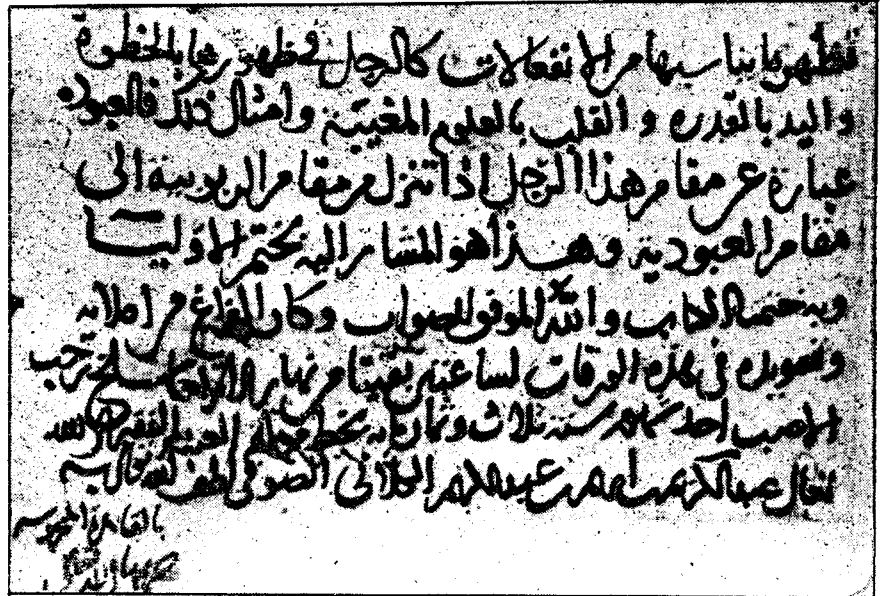 فتظهر بما يناسبها من الانفعالات كالرجل في ظهورها بالخطوة
واليد بالقدره و القلب بالعلوم المغيبة وامثال ذلك فالعبوده
عبارة عن مقام هذا الرجل اذا تنزل من مقام الربوبية الى
مقام العبودية وهذا هو المشار اليه بختم الاوليا
وبه ختمنا الكتاب والله الموفق للصواب وكان الفراغ من املائه
وتسويده في هذه الورقات لساعتين بقيتا من نهار الاربعا سلخ رجب
الاصب احد شهور سنة ثلاث وثمان مايه بخط العبد الفقير الى الله
تعالى عبد الكريم بن ابراهيم بن عبد الكريم الكيلاني الصوفي لطف الله به
بالقاهرة المحروسه